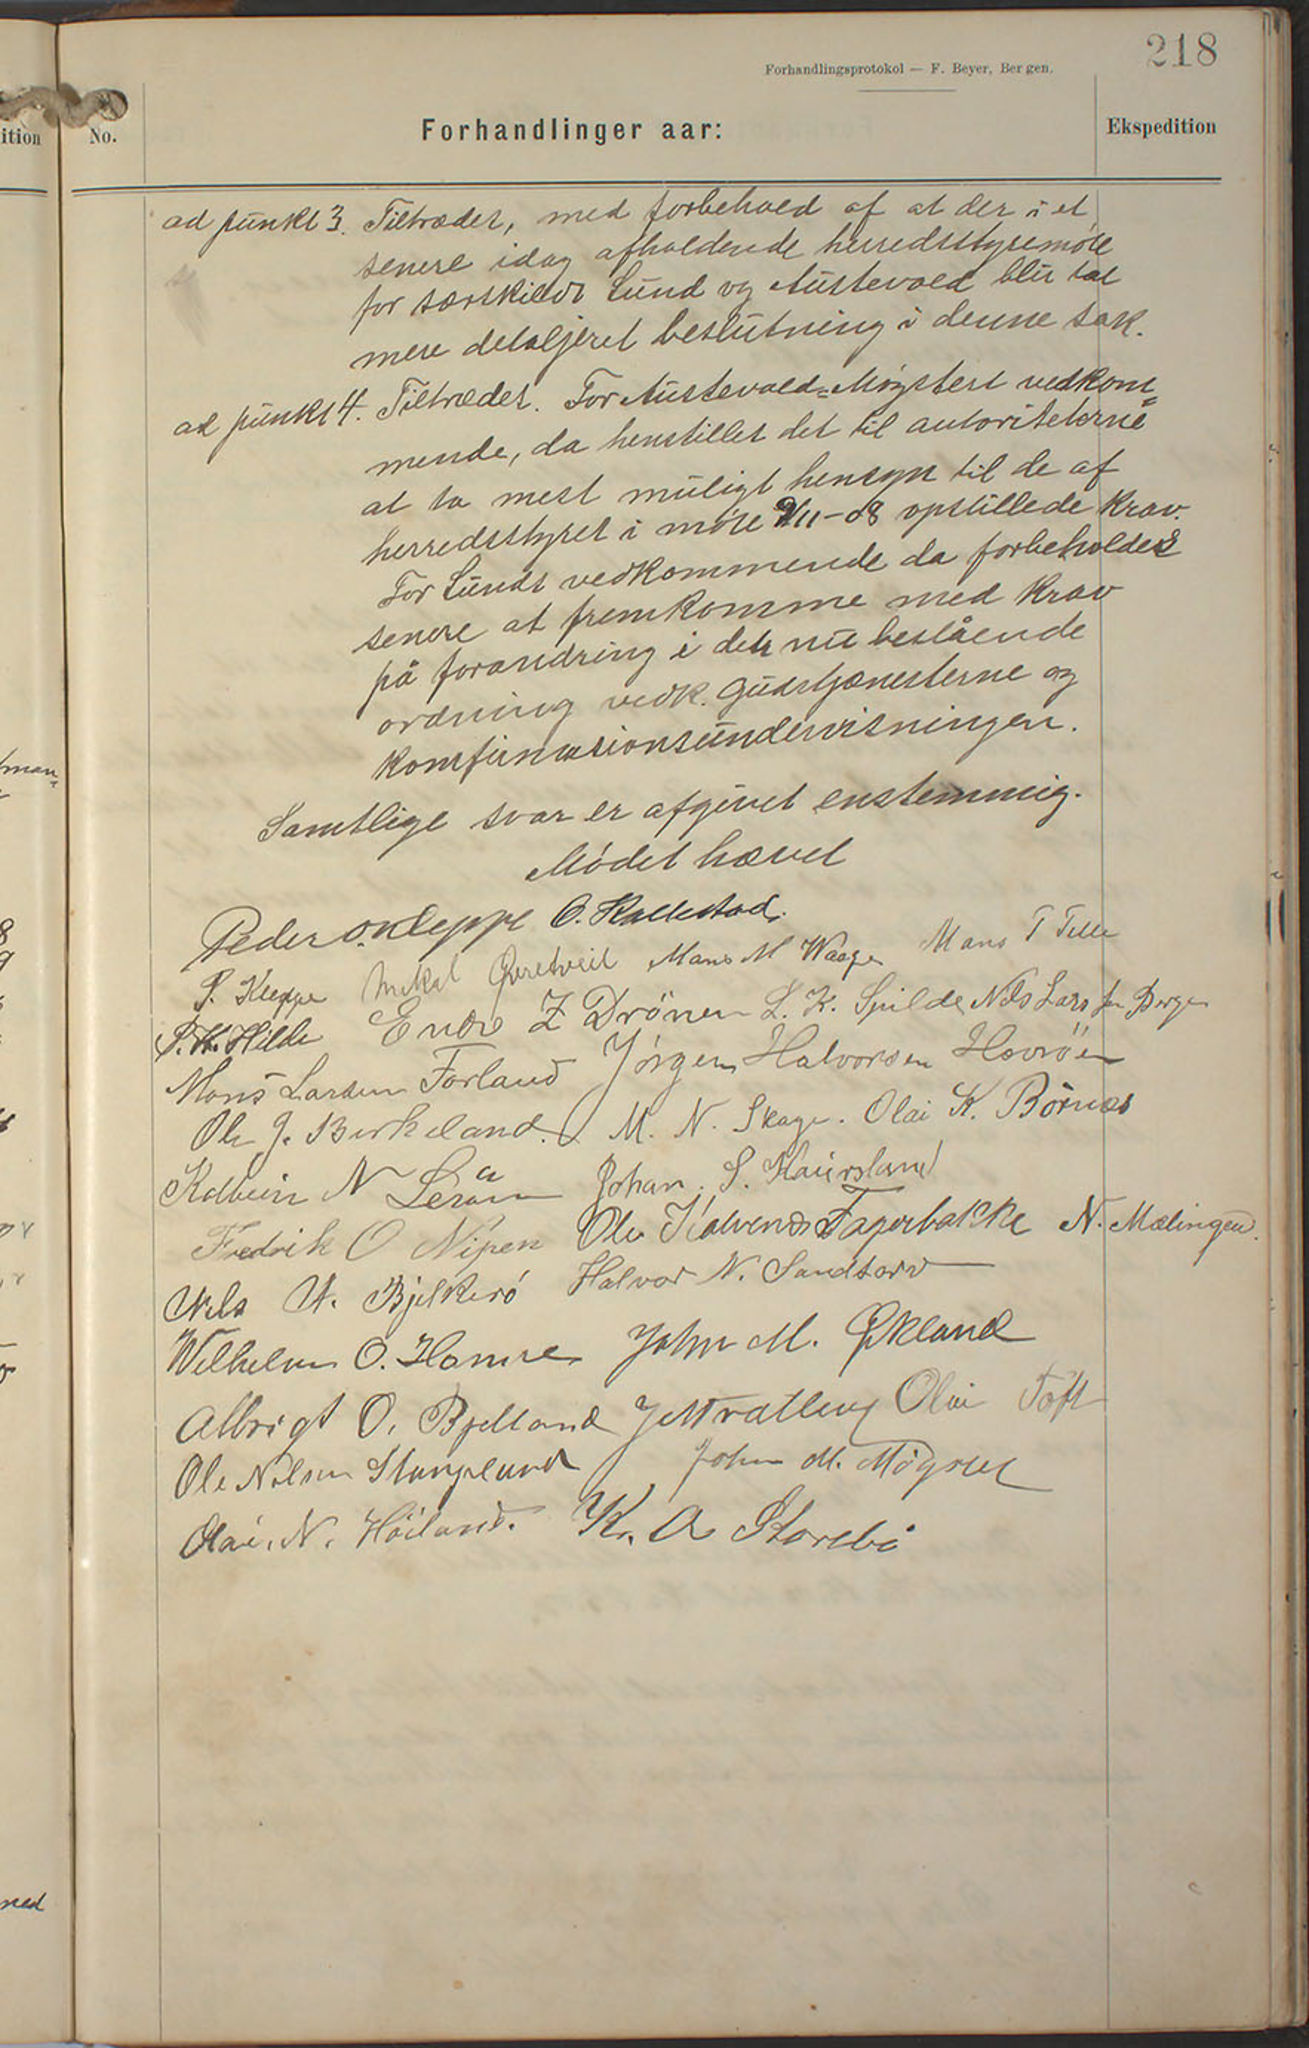 218
Forhandlingsprotokol — F. Beyer, Bergen.
ition No. Forhandlinger aar: Ekspedition
ad punkt 3. Tiltrædes, med forbehold af at der i et
senere idag afholdende herredsstyremöte
for særskildt Sund og Austevold blir tat
mere detaljeret beslutning i denne sak.
ad punkt 4. Tiltrædes. For Austevold=Møgsters vedkom=
mende, da henstilles det til autoriteterne
at ta mest muligt hensyn til de af
herredsstyret i möte 9/11-08 opstillede krav.
For Sunds vedkommende da forbeholdes
senere at fremkomme med krav
på forandring i den nu bestående
ordning vedk. gudstjenesterne og
komfirmasionsundervisningen.
Samtlige svar er afgivet enstemmig.
Mödet hævet
Peder O. Kleppe O. Kallestad.
S. Kleppe Mikal Qvretveit Mans M Waage Mans T Telle
Endre Z Drönen L. K. Spilde Nils Larsen Berge
Mons Larsen Forland Jörgen Halvorsen Hovröen
Ole J. Birkeland. M. N. Skage. Olai K. Börnes
Kolbein N Leröen Johan. S. Haugsland
Fredrik O Nipen Ole Halvorsen Fagerbakke N. Mælingen.
Nils N. Bjelkerö Halvor N. Sandtorv
Wilhelm O. Hamre John M. Økland
Albrigt O. Bjelland Olai Toft
Ole Nilsen Stangeland John M. Møgster
Olai. N. Höiland. Kr. A Storebö